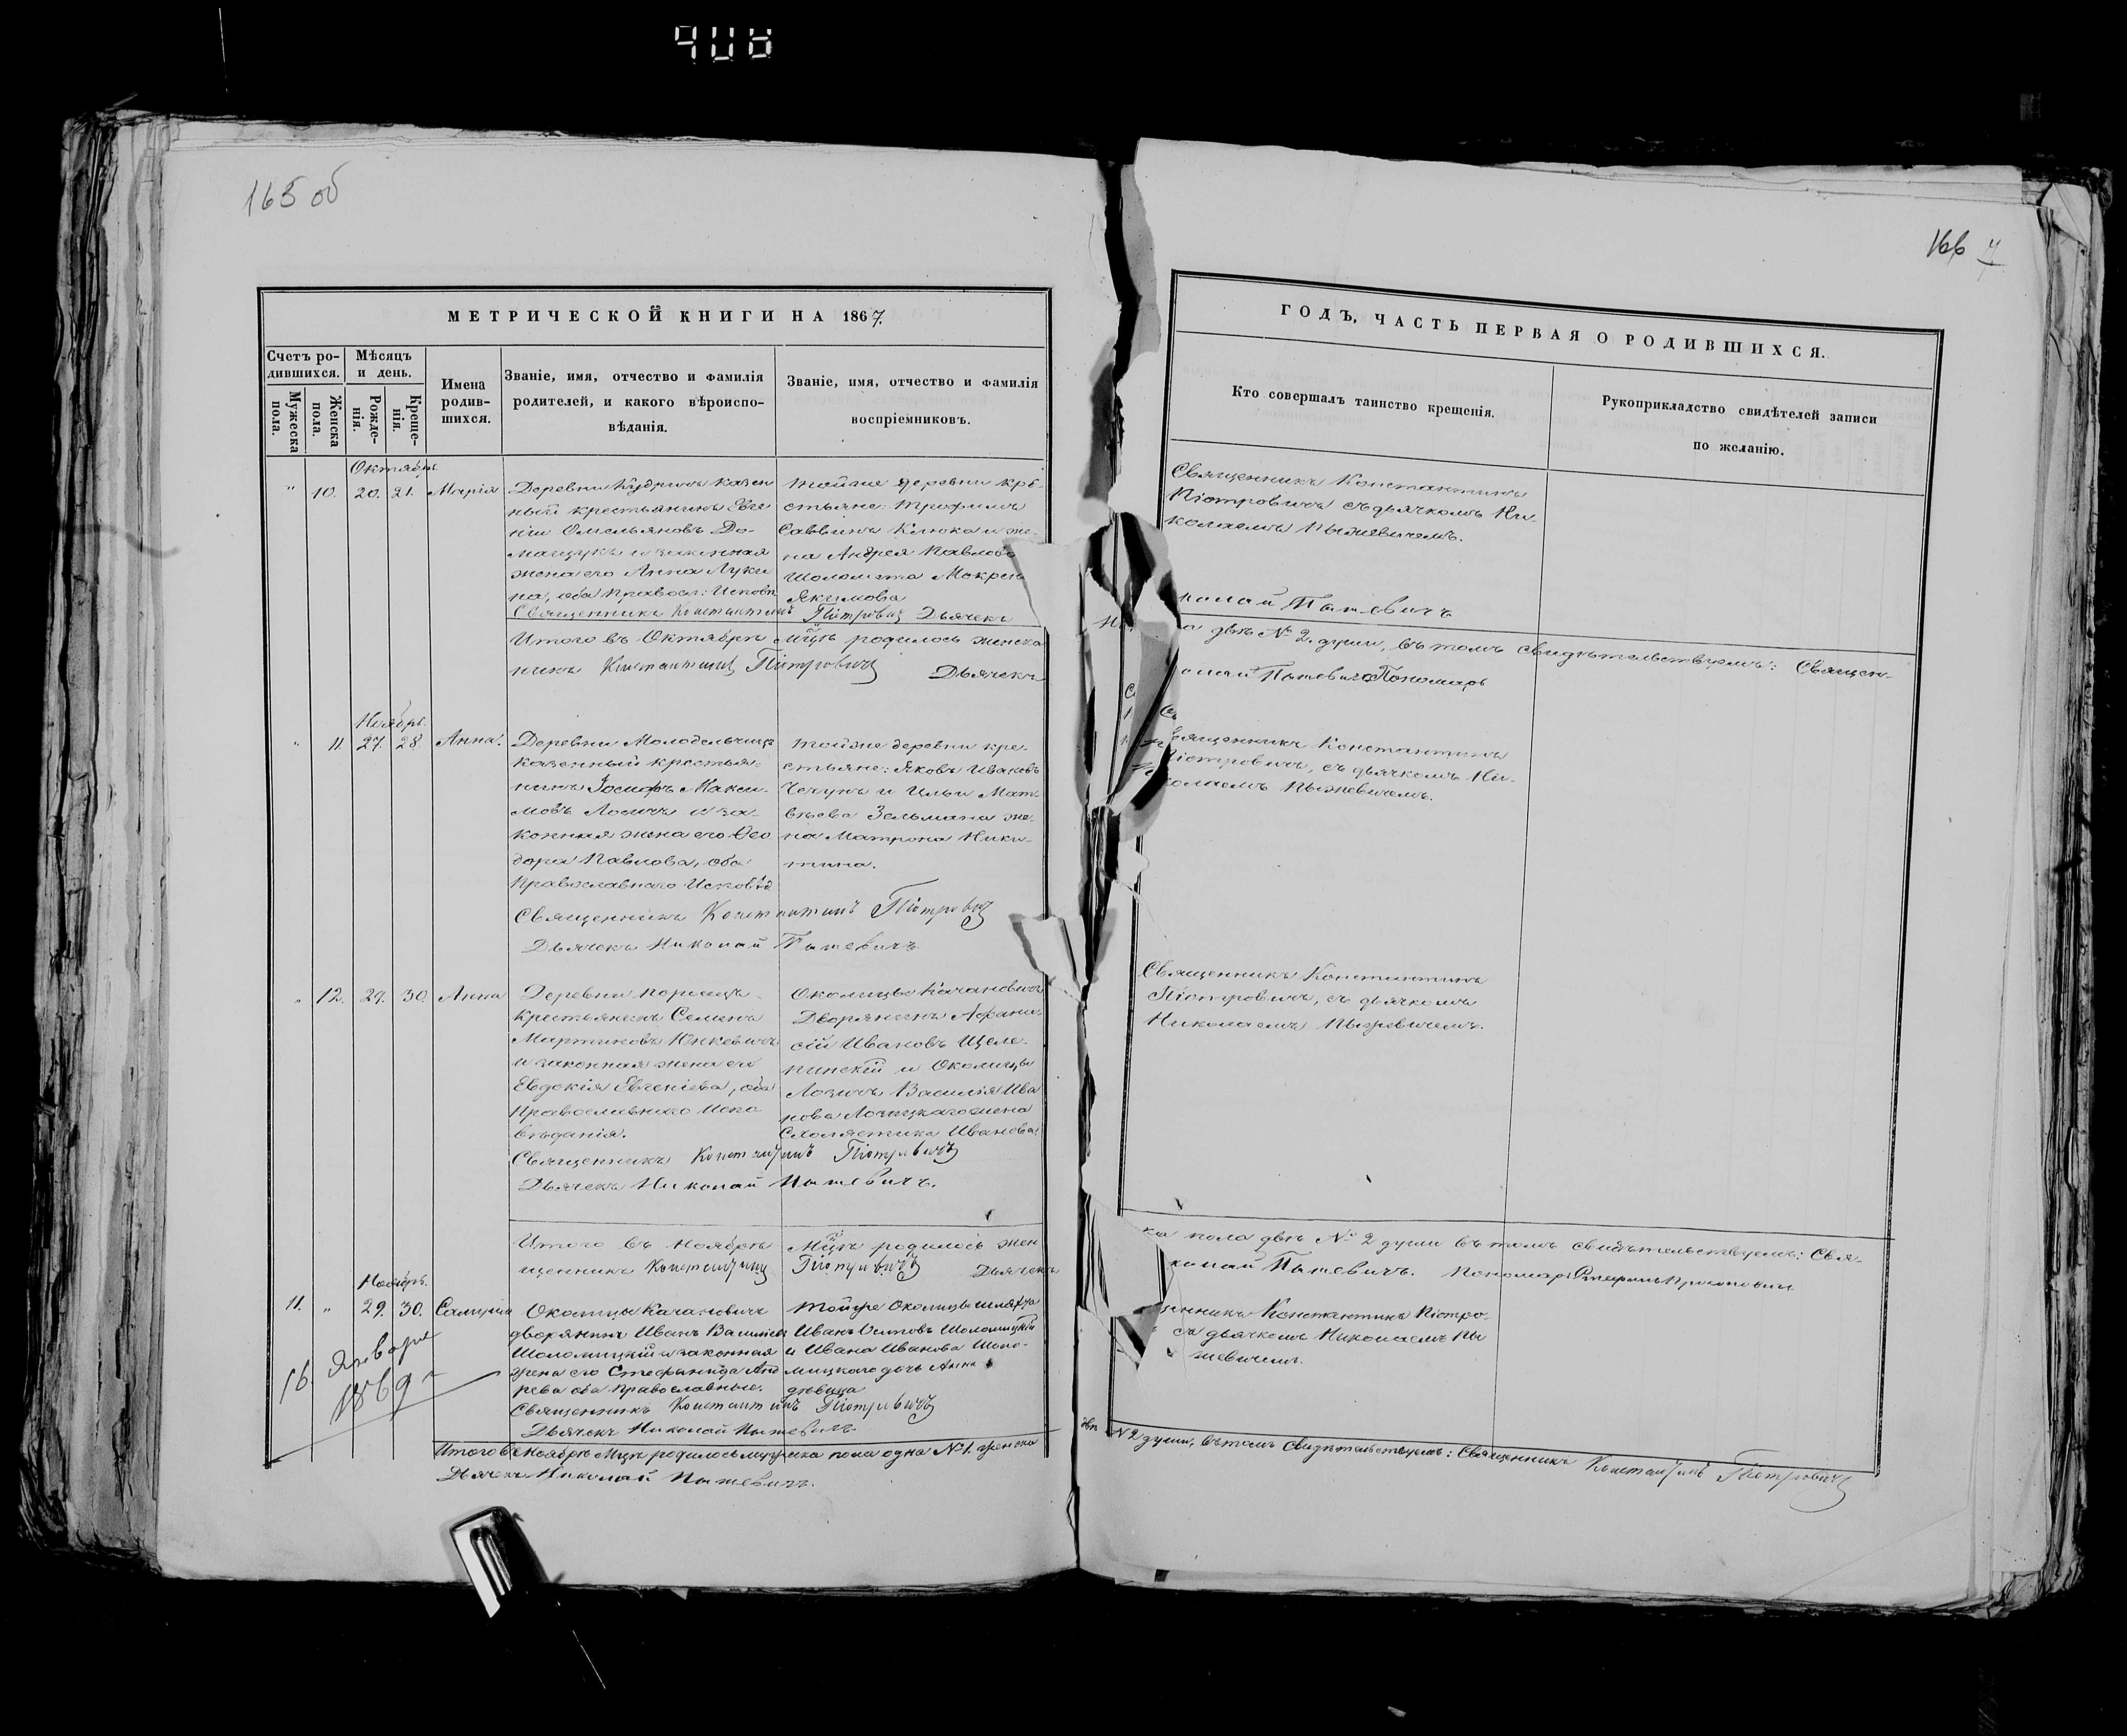 908
165 об
МЕТРИЧЕСКОЙ КНИГИ НА 1867.
Счетъ родившихся.
Мѣсяцъ и день.
Имена родившихся.
Званіе, имя, отчество и фамилія родителей, и какого вѣроисповѣданія.
Званіе, имя, отчество и фамилія воспріемниковъ.
Мужеска пола.
Женска пола.
Рожденія.
Крещенія.
Октябрь.
" 10. 20. 21. Марія
Деревни казен
ный крестьянинъ Евге
ній Омельяновъ До-
мащукъ и законная
жена его Анна Луки
на, оба правосл: Исповѣд
Тойже деревни кре-
стьяне: Трофимъ
Саввинъ Клюка и же-
на Андрея Павлова
Шоломета
Якимова
Священникъ Константинъ Піотровичъ Дьячекъ
Итого въ Октябрѣ Мцѣ родилось женска
никъ Константинъ Піотровичъ Дьячекъ
Ноябрь.
" 11 27. 28. Анна.
Деревни
казенный крестья-
нинъ Іосифъ Макси-
мовъ Лосичъ и за-
конная жена его Ѳео
дора Павлова, оба
Православнаго Исповѣд
тойже деревни кре-
стьяне: Яковъ Ивановъ
и Ильи Мат
вѣева Зельмана же-
на Матрона Ники-
тина.
Священникъ Константинъ Піотровичъ
Дьячекъ Николай Пыжевичъ
" 12. 29. 30. Анна
Деревни
крестьянинъ Семенъ
Мартиновъ Юнкевичъ
и законная жена его
Евдокія Евгеніева, оба
Православнаго Испо
вѣданія.
Околицы Качановичъ
Дворянинъ Афана-
сій Ивановъ Щеле-
пинскій и Околицы
Лозичъ Василія Ива
нова Лозицкаго жена
Схолястика Иванова.
Священникъ Константинъ Піотровичъ
Дьячекъ Николай Пыжевичъ.
Итого въ Ноябрѣ Мцѣ родилось жен
щенникъ Константинъ Піотровичъ Дьячекъ
Ноябрь.
11. " 29. 30.
Околицы Качановичъ
дворянинъ Иванъ Василіевъ
Шоломицкій и законная
жена его Стефанида Анд
рева оба православные.
Тойже Околицы шляхта
Иванъ Шоломицкій
и Ивана Иванова Шоло-
мицкаго дочь Анна
дѣвица
Священникъ Константинъ Піотровичъ
Дьячекъ Николай Пыжевичъ
16. Января
1869 г
Итого въ Ноябрѣ Мцѣ родилось мужеска пола одна №1. женска
Дьячекъ Николай Пыжевичъ.
166
ГОДЪ, ЧАСТЬ ПЕРВАЯ О РОДИВШИХСЯ.
Кто совершалъ таинство крещенія.
Рукоприкладство свидѣтелей записи по желанію.
Священникъ Константинъ
Піотровичъ съ дьячкомъ Ни-
колаемъ Пыжевичемъ.
колай Пыжевичъ
а двѣ № 2. души, въ томъ свидѣтельствуемъ: Священ-
олай Пыжевичъ Пономарь
вященникъ Константинъ
Піотровичъ, съ дьячкомъ Ни-
колаемъ Пыжевичемъ.
Священникъ Константинъ
Піотровичъ, съ дьячкомъ
Николаемъ Пыжевичемъ.
ка пола двѣ № 2 души въ томъ свидѣтельствуемъ: Свя-
колай Пыжевичъ. Пономарь
щенникъ Константинъ Піотро-
съ дьячкомъ Николаемъ Пы
жевичемъ.
двѣ №2 души, въ томъ свидѣтельствуемъ: Священникъ Константинъ Піотровичъ